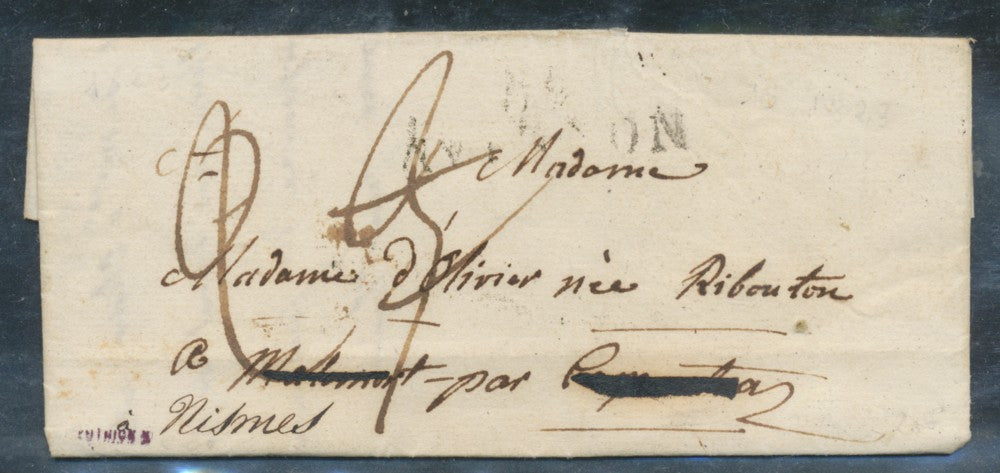 84
AVIGNON
A Madame
Madame d'Olivier née Ribouton
à Mallmort - par
à
Nismes